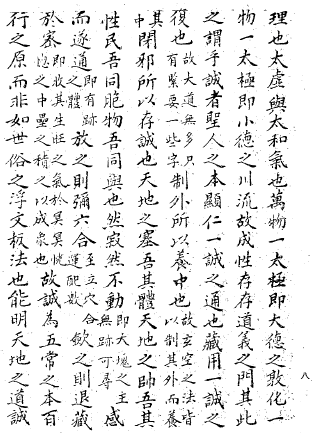 理也太虛與太和氣也萬物一太極即大德之敦化一
物一太極即小德之川流故成性存存道義之門其此
之謂乎誠者聖人之本顯仁一誠之通也藏用一誠之
復也故大道無多只有緊要一些字制外所以養中也故玄空之法皆以制其外而養
其中閉邪所以存誠也天地之塞吾其體天地之帥吾其
性民吾同胞物吾同與也然寂然不動即大塊之主無跡可尋感
而遂通即有跡之體放之則彌六合至立穴合運配數歛之則退藏
於密即收其生旺之氣於冥冥恍惚之中壘之積之以成象也故誠為五常之本百
行之原而非如世俗之浮文板法也能明天地之道誠
八